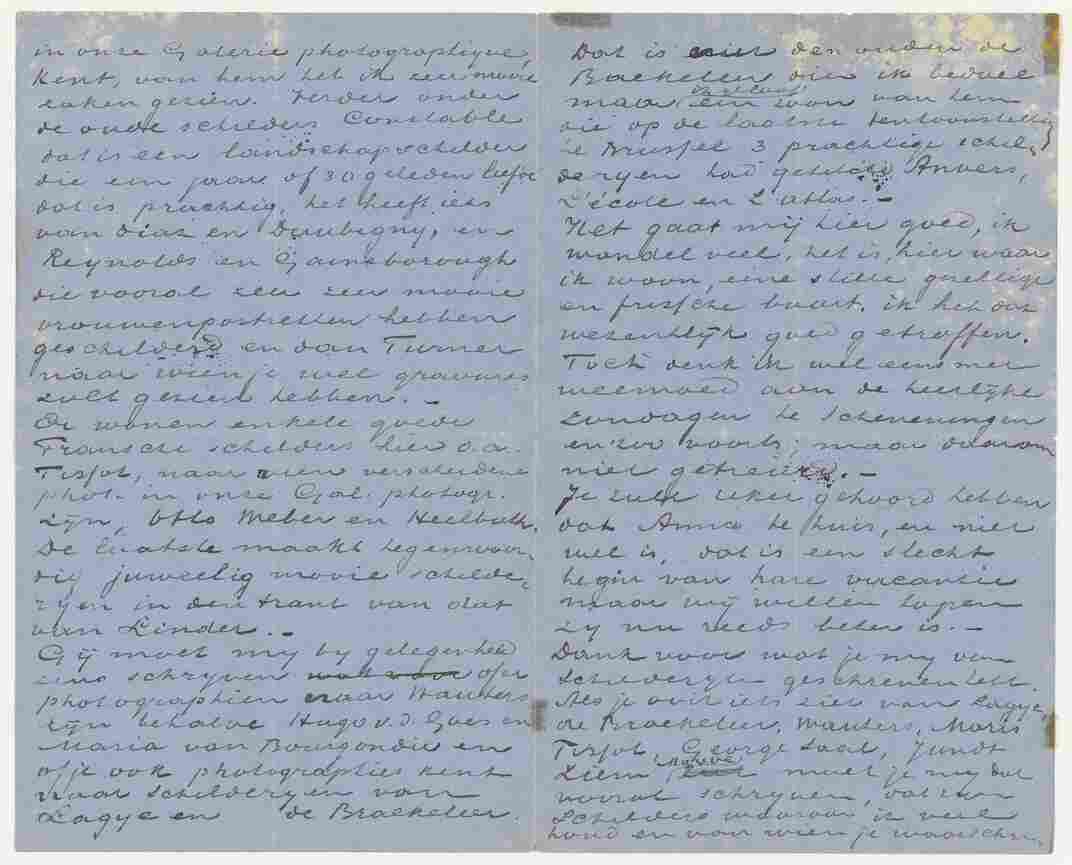 in onze Galerie photographique
kent, van hem heb ik een mooie
zaken gezien. Verder onder
de oude schilders Constable
dat is een landschapschilder
die een jaar of 30 geleden leefde
dat is prachtig, het heeft iets
van Diaz en Daubigny, en
Reynolds en Gainsborough
die vooral zeer zeer mooie
vrouwenportretten hebben
geschilderd en dan Turner
naar wien je wel gravures
zult gezien hebben. –
Er wonen enkele goede
Fransche schilders hier o.a.
Tissot, naar wien verscheidene
phot. in onze Gal. photogr.
zijn, Otto Weber en Heilbuth.
De laatste maakt tegenwoor-
dig juweelig mooie schilde-
rijen in den trant van dat
van Linder. –
Gij moet mij bij gelegenheid
eens schrijven of er
photographien naar Wauters
zijn behalve Hugo v.d. Goes en
Maria van Bourgondie en
of je ook photographies kent
naar schilderijen van
Lagye en de Braekeleer.
Dat is niet den ouden de
Braekeleer dien ik bedoel
maar een zoon van hem
die op de laatste tentoonstelling
te Brussel 3 prachtige schil-
derijen had getiteld Anvers,
L'école en L'atlas. –
Het gaat mij hier goed, ik
wandel veel, het is, hier waar
ik woon, eene stille gezellige
en frissche buurt. ik heb dat
wezentlijk goed getroffen.
Toch denk ik wel eens met
weemoed aan de heerlijke
zondagen te Scheveningen
en zoo voorts; maar daarom
niet getreurd. –
Je zult zeker gehoord hebben
dat Anna te huis, en niet
wel is, dat is een slecht
begin van hare vacantie
maar wij willen hopen
zij nu reeds beter is. –
Dank voor wat je mij van
schilderijen geschreven hebt.
Als je ooit iets ziet van Lagye,
de Braekeleer, Wauters, Maris
Tissot, George Saal, Jundt
Ziem, Mauve moet je mij dat
vooral schrijven, dat zijn
schilders waarvan ik veel
houd en van wien je waarschij-